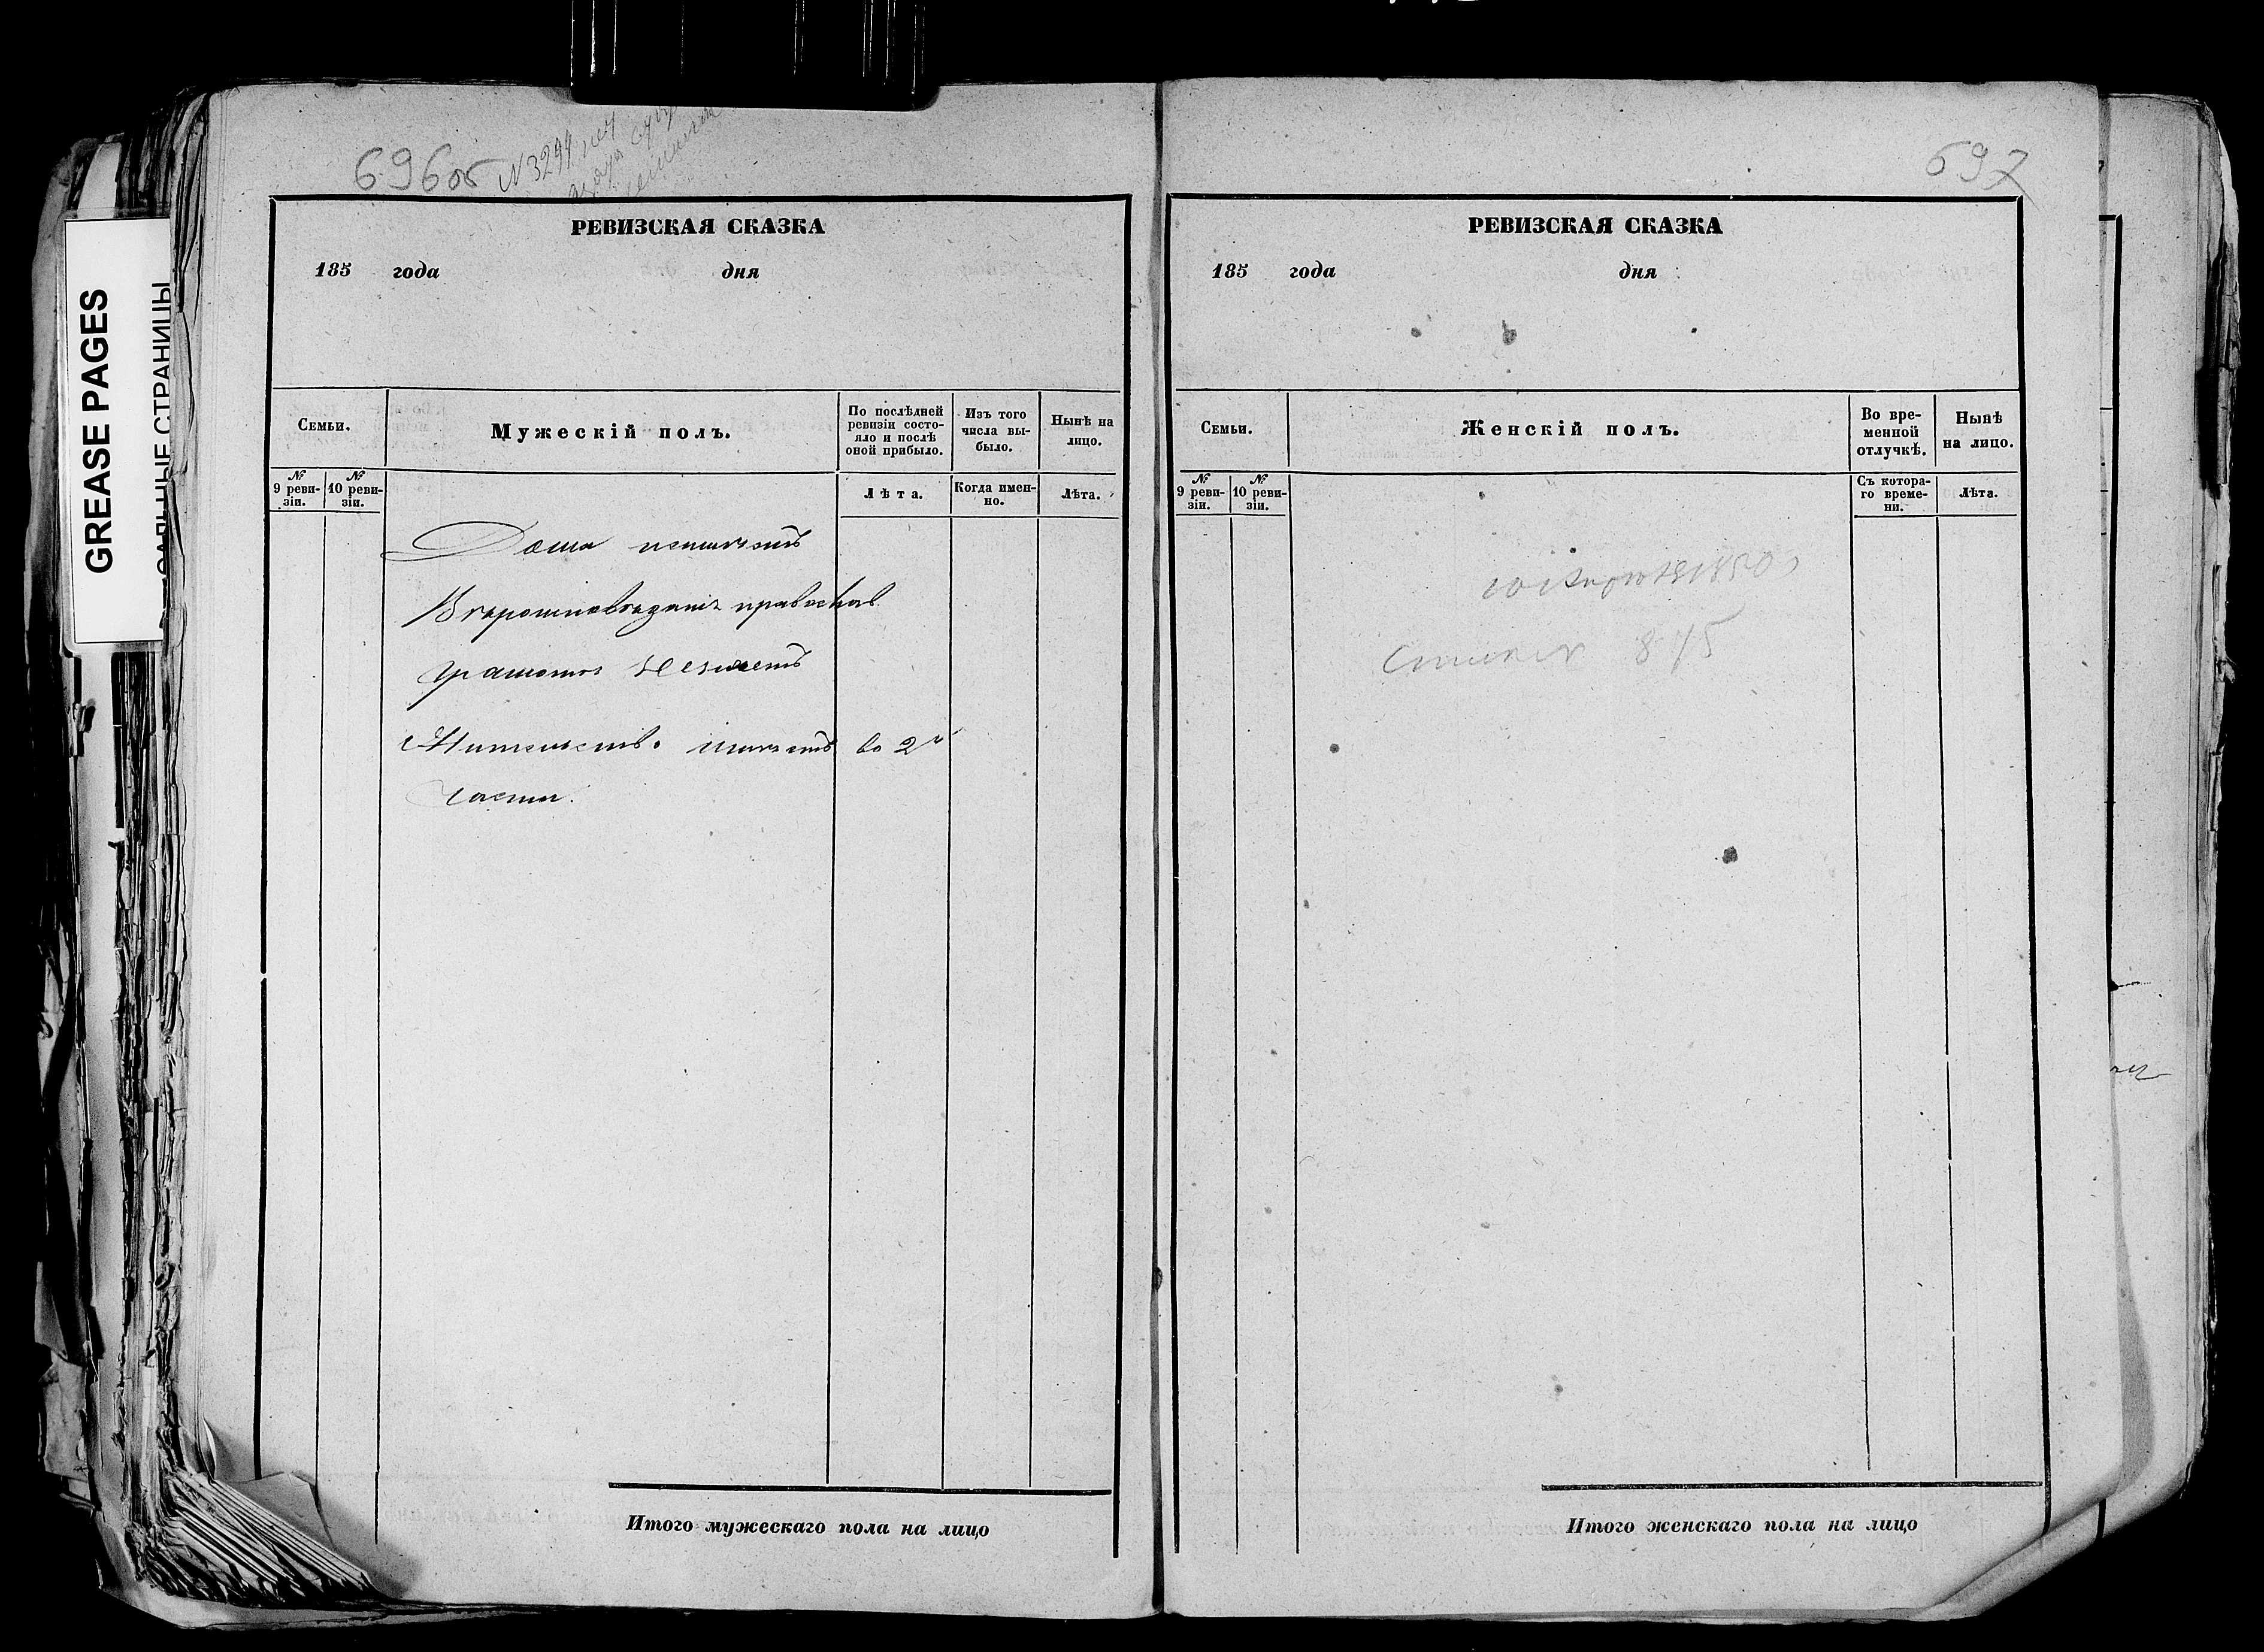 GREASE PAGES
САЛЬНЫЕ СТРАНИЦЫ
696об N 3299
РЕВИЗСКАЯ СКАЗКА
185 года дня
Семьи.
Мужескій полъ.
По послѣдней ревизіи состо-
яло и послѣ
оной прибыло.
Изъ того
числа вы-
было.
Нынѣ на
лицо.
№
9 реви-
зіи.
№
10 реви-
зіи.
Лѣта.
Когда имен-
но.
Лѣта.
Дома неимѣетъ
Вѣроисповѣданія православ
грамотѣ незнаетъ
Жительство имѣетъ во 2й
части.
Итого мужескаго пола на лицо
697
РЕВИЗСКАЯ СКАЗКА
185 года дня
Семьи.
Женскій полъ.
Во вре-
менной
отлучкѣ.
Нынѣ
на лицо.
№
9 реви-
зіи.
№
10 реви-
зіи.
Съ котора-
го време-
ни.
Лѣта.
1850
875
Итого женскаго пола на лицо